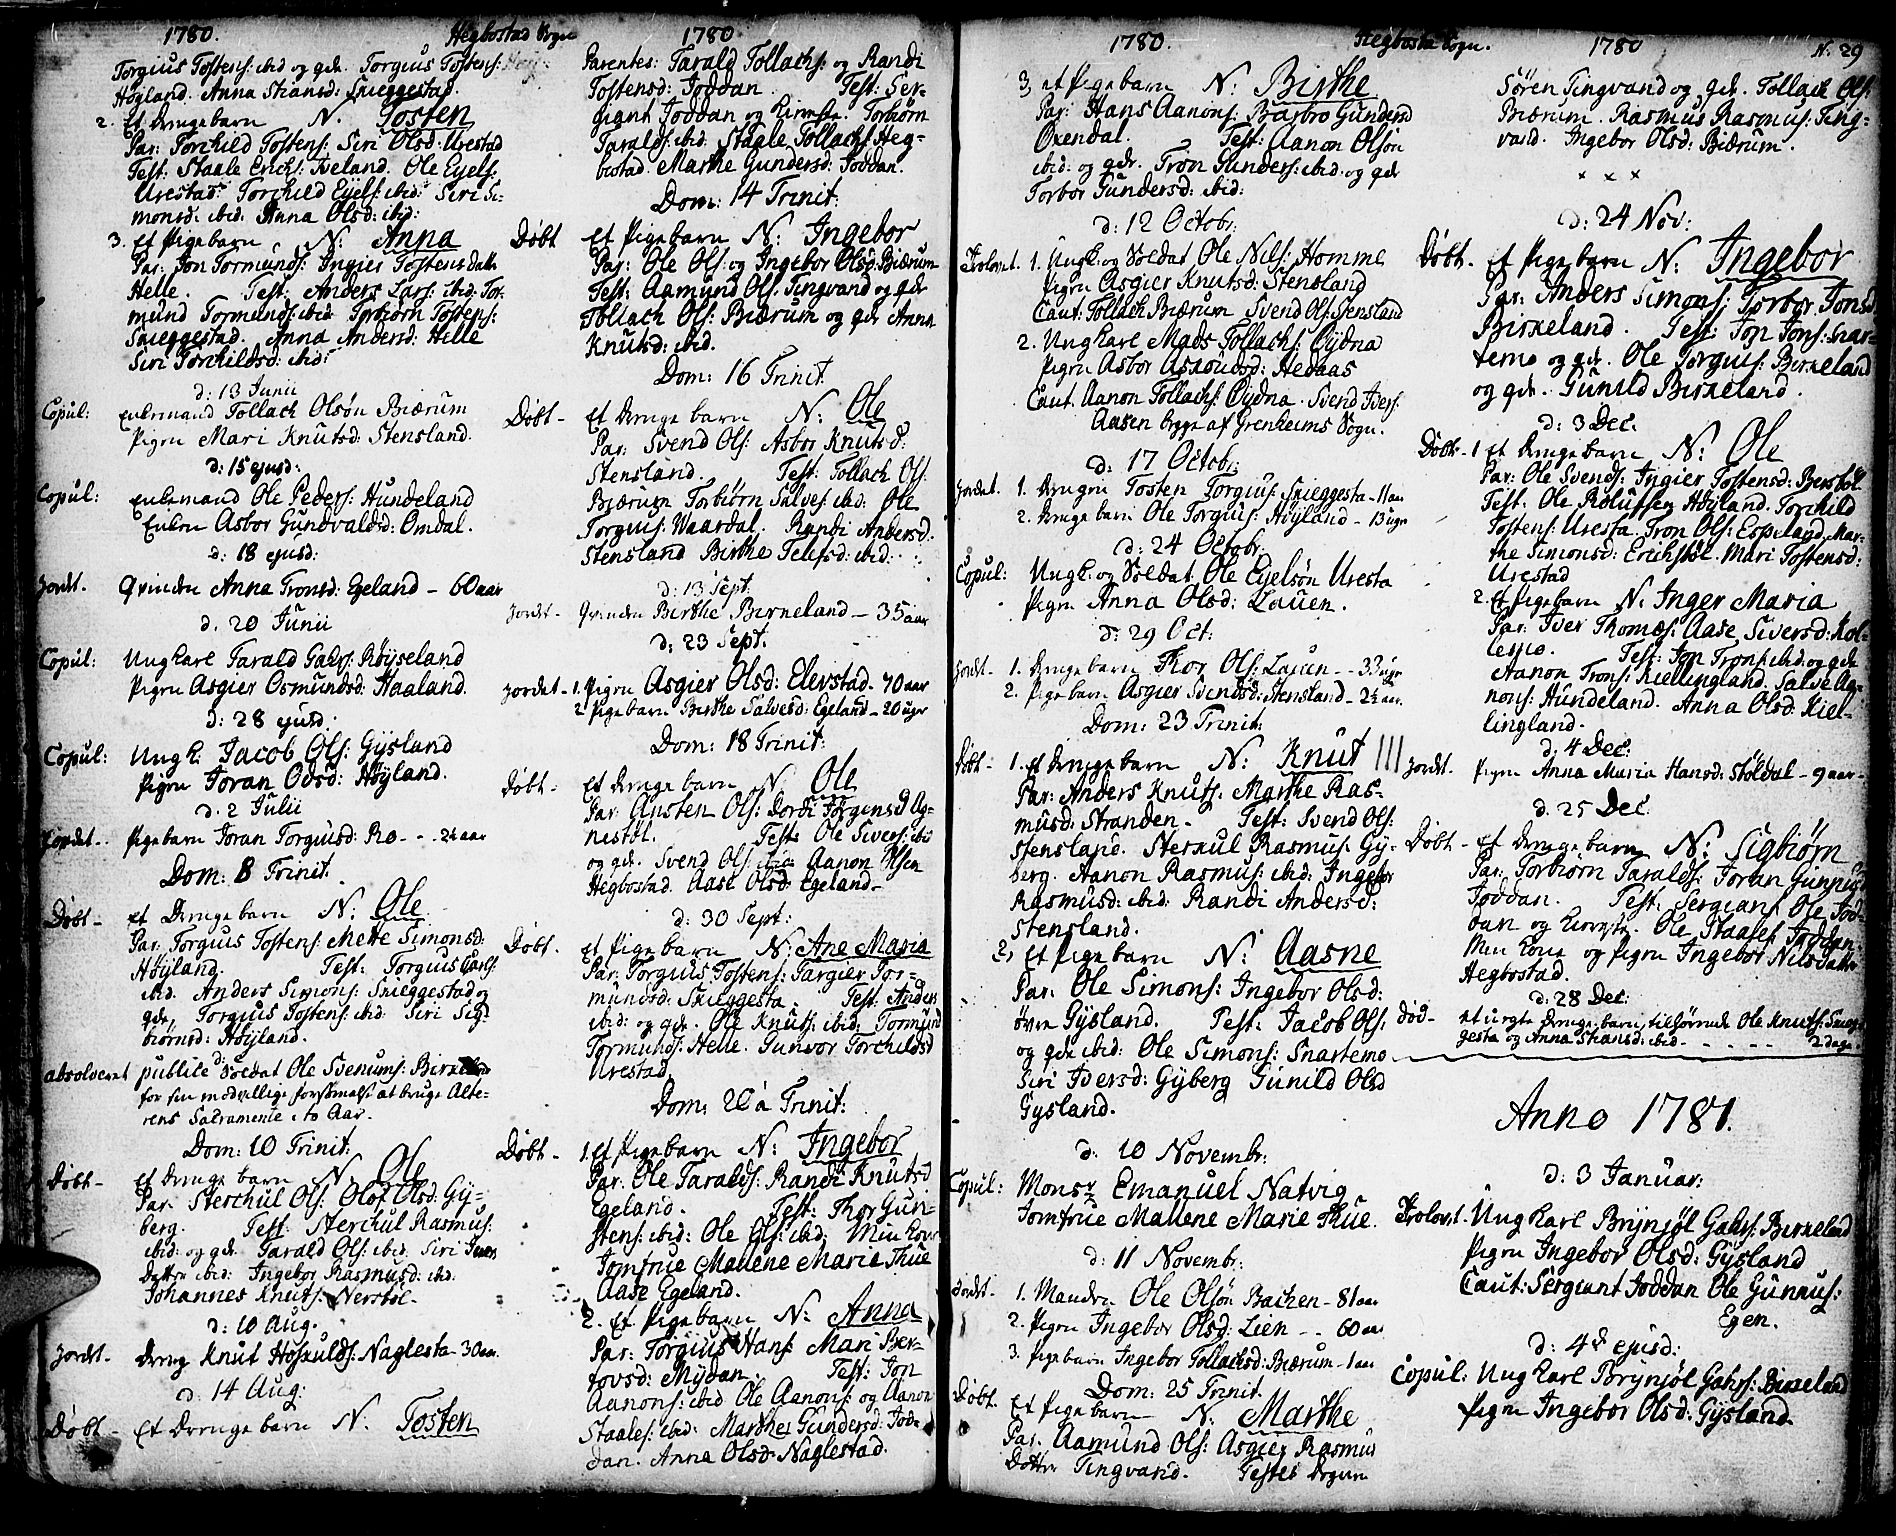 1780. Hegbostad Sogn 1780
Torgius Tostens: ibid og qde. Torgius Tostens:
Høgland. Anna Stiansd: Skieggestad.
2. Et drengebarn N. Tosten
Par: Torchild Tostens: Siri Olsd: Urestad
Test: Staale Erichs: Tveland. Ole Eyels:
Urestad. Torchild Eyels: ibid: Siri Si-
monsd: ibid. Anna Olsd: ibid:
3. Et Pigebarn N: Anna
Par: Jon Tormunds: Ingier Tostens datt
Helle. Test: Anders Lars: ibid: Tor-
mund Tormunds: ibid Torbiorn Tostens:
Skieggestad. Anna Andersd: Helle
Siri Torchildsd: ibid:
d: 13 Junii
Copul: Enkemand Tollach Olsøn Biærum
Pigen Mari Knutsd: Stensland.
d: 15 ejusd:
Copul: Enkemand Ole Peders: Hundeland
Enken Asbor Gundvaldsd: Omdal.
d: 18 ejusd:
Jordt. Qvinden Anna Tronsd: Egeland - 60 aar
d. 20 Junii
Copul: Ungkarl Tarald Gahrs: Røyseland
Pigen Asgier Osmundsd: Haaland.
d: 28 ejusd:
Copul: Ungk. Jacob Ols: Gysland
Pigen Joran Odsd: Høyland.
d. 2 Julii
Jordet. Pigebarn Joran Torgiusd: Ro - - 2½ aar
Dom: 8 Trinit.
Døbt - et Drengebarn N: Ole
Par: Torgius Tostens: Mette Simonsd:
Høyland. Test: Torgius Carls:
ibid. Anders Simons: Skieggestad og
qde. Torgius Tostens: ibid. Siri Sig-
biørnsd: Høyland.
d:
absolveret publice Soldat Ole Svenums: Birkeland
for sin modvillige forsømelse at bruge Alte-
rens Sacramente i to Aar.
Dom: 10 Trinit:
Døbt - et drengebarn N. Ole
Par. Sterchul Ols: Olof Olsd: Gy-
berg. Test: Sterchul Rasmus:
ibid: og qde. Tarald Ols: ibid. Siri Ivers
Datter ibid: Ingebor Rasmusd: ibid.
Johannes Knuts: Nerstøl.
d: 10 Aug.
Jordt. Dreng Knut Hoskulds: Naglesta - 30 aar.
d: 14 Aug:
Døbt - Et Drengebarn N. Tosten
Parentes: Tarald Tollachs: og Randi
Tostensd: Joddan. Test: Ser-
giant Joddan og Kierreste. Torbiørn
Taralds: ibid. Staale Tollachs: Heg-
bostad. Marthe Gundersd: Joddan.
Dom: 14 Trinit:
Døbt Et Pigebarn N: Ingebor
Par: Ole Ols: og Ingebor Olsd: Biærum
Test: Aamund Ols. Tingvand og qde
Tollach Ols: Biærum og qde Anna
Knutsd: ibid.
Dom: 16 Trinit.
Døbt - Et Drengebarn N: Ole
Par: Svend Ols: Asbor Knutsd:
Stensland. Test: Tollach Ols:
Biærum Torbiørn Salves: ibid: Ole
Torguis: Waardal. Randi Andersd:
Stensland Birthe Telefsd: ibid:
d: 13 Sept.
Jordt - Qvinden Birthe Birkeland - 35 aar
d: 23 Sept.
Jordet - 1. Pigen Asgier Olsd: Elevstad. 70 aar
2 Pigebarn Birthe Salvesd: Egeland - 20 uger
Dom: 18 Trinit:
Døbt - Et Drengebarn N. Ole
Par: Austen Ols: Dordi Jørgensd Ag-
nestøl. Test: Ole Sivers: ibid
og qde. Svend Ols: ibid: Aanon Olsen
Hegbostad. Aase Olsd: Egeland -
d: 30 Sept:
Døbt. et Pigebarn N: Ane Maria
Par: Torgius Tostens: Targier Tor-
mundsd: Skieggesta. Test: Anders
ibid: og qde. Ole Knuts: ibid: Tormund
Tormunds: Helle. Gunvor Torchildsd
Urestad.
Dom: 20 a Trinit:
Døbt - 1. Et Pigebarn N: Ingebor
Par: Ole Taralds: Randi Knutsd
Egeland. Test: Thor Gun-
stens: ibid: Ole Ols: ibid: Min Kone
Jomfrue Mallene Marie Thue
Aase Egeland.
2. Et Pigebarn N: Anna
Par: Torgius Hans: Mari Ber-
tovsd: Mydan. Test: Jon
Aanons: ibid Ole Aanons: og Aanon
Staales: ibid: Marthe Gundersd: Jod-
dan. Anna Olsd: Naglestad.
1780. Hegbosta Sogn. 1780 N. 29
3, et Pigebarn N: Birthe
Par: Hans Aanons: Barbro Gundersd
Oxendal. Test: Aanon Olsøn
ibid: og qde. Tron Gunders: ibid: og qde
Torbor Gundersd: ibid:
d: 12 Octobr:
Trolovet. 1. Ungk. og Soldat Ole Nils: Homme
Pigen Asgier Knutsd: Stensland
Caut: Tollach Biærum Svend Ols: Stensland
2. Ungkarl Mads Tollachs: Oydna
Pigen Asbor Askoudsd: Hedaas
Caut. Aanon Tollachs: Oydna. Svend Ivers:
Aasen begge af Grenheims Sogn.
d: 17 Octobr:
Jordet. 1. Drengen Tosten Torgius: Skieggesta - 11 aar
2. Drengebarn Ole Torgius: Høyland - 13 uger
d: 24 Octobr.
Copul: Ungk. og Soldat Ole Eyelsøn Uresta
Pigen Anna Olsd: Lauen.
d: 29 Oct:
Jordt - 1. Drengebarn Thor Ols: Lauen - - 33 uger
2. Pigebarn Asgier Svendsd: Stensland - 2½ aar.
Dom: 23 Trinit:
Døbt - 1. et Drengebarn N: Knut
Par: Anders Knuts. Marthe Ras-
musd: Stranden. Test: Svend Ols:
Stensland. Sterkul Rasmus: Gy-
berg. Aanon Rasmus: ibid: Ingebor
Rasmusd: ibid: Randi Andersd:
Stensland.
2, Et Pigebarn N: Aasne
Par: Ole Simons: Ingebor Olsd:
øvre Gysland. Test: Jacob Ols:
og qde ibid: Ole Simons: Snartemo
Siri Iversd: Gyberg Gunild Olsd
Gysland.
d: 10 Novembr:
Copul: Monsr Emanuel Natvig
Jomfrue Mallene Marie Thue.
d: 11 Novembr:
Jordt - 1. Manden Ole Olsøn Bachen - 81 aar
2. Pigen Ingebor Olsd: Lien - - 60 aar
3. Pigebarn Ingebor Tollachsd: Biærum - 1 aar
Dom: 25 Trinit.
Døbt. Et Pigebarn N: Marthe
Par. Aamund Ols: Asgier Rasmus
Datter Tingvand. Testes Sogum
Søren Tingvand og qde. Tollach Ols:
Biærum. Rasmus Rasmus: Ting-
vand. Ingebor Olsd: Biærum.
× × ×
d: 24 Nov:
Døbt. et Pigebarn N: Ingebor
Par: Anders Simons: Torbor Jonsd:
Birkeland. Test: Jon Jons: Snar-
temo og qde. Ole Torguis: Birkeland
og qde. Gunild Birkeland.
d: 3 Dec.
Døbt - 1 Et Drengebarn N: Ole
Par: Ole Svends: Ingier Tostensd: Berstøl
Test: Ole Roluffsen Høyland. Torchild
Tostens: Uresta. Tron Ols: Espeland. Mar-
the Simonsd: Erichstøl. Mari Tostensd:
Urestad
2. Et Pigebarn N: Inger Maria
Par: Iver Thomæs: Aase Siversd: Kol-
lesmo. Test: Jon Trons: ibid. og qde
Aanon Trons: Kiellingland. Salve Aa-
nons: Hundeland. Anna Olsd: Kiel-
lingland.
d. 4 Dec:
Jordt. Pigen Anna Maria Hansd: Støldal - 9 aar -
d. 25 Dec.
Døbt - et Drengebarn N: Sigbiørn
Par: Torbiørn Taralds: Joran Gunnus
Joddan. Test: Sergiant Ole Jod-
dan og Kierreste. Ole Staales: Joddan.
Min Kone og Pigen Ingebor Nilsdatter
Hegbostad.
d: 28 Dec:
død - et uægte drengebarn, tilhørende Ole Knuts: Skieg-
gesta og Anna Stiansd: ibid - - - - - 2 dage
Anno 1781.
d: 3 Januar:
Trolovet. Ungkarl Brynjøl Gahrs: Birkeland
Pigen Ingebor Olsd: Gysland
Caut: Sergiant Joddan Ole Gunnus:
Egen.
d: 4de ejusd:
Copul: Ungkarl Brynjøl Gahrs: Birkeland
Pigen Ingebor Olsd: Gysland.